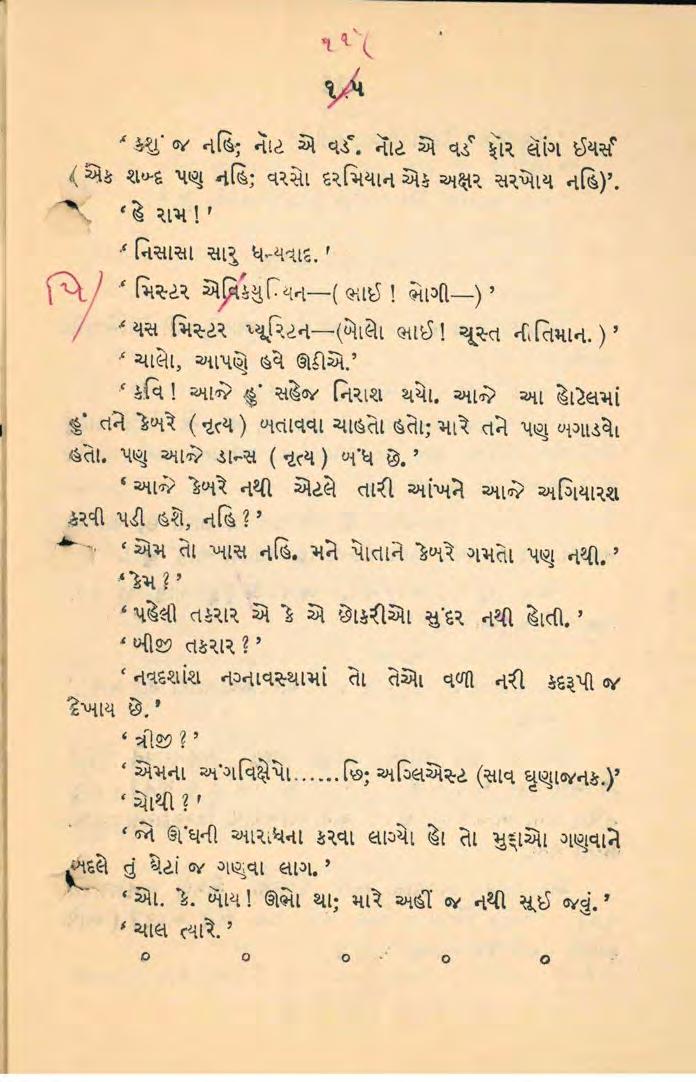 ૧૧૫
૧.૫
‘ કશું જ નહિ; નૉટ એ વર્ડ. નૉટ એ વર્ડ ફૉર લૉંગ ઈયર્સ
( એક શબ્દ પણ નહિ; વરસો દરમિયાન એક અક્ષર સરખોય નહિ)’.
‘હે રામ!’
‘ નિસાસા સારુ ધન્યવાદ. ’
પિ/ ‘ મિસ્ટર એવિક્યુરિયન—( ભાઈ ! ભોગી—) ’
‘ યસ મિસ્ટર પ્યૂરિટન—(બોલો ભાઈ! ચૂસ્ત નીતિમાન. ) ’
‘ ચાલો, આપણે હવે ઊડીએ.’
‘ કવિ ! આજે હું સહેજ નિરાશ થયો. આજે આ હોટેલમાં
હું તને કેબરે ( નૃત્ય ) બતાવવા ચાહતો હતો; મારે તને પણ બગાડવો
હતો. પણ આજે ડાન્સ ( નૃત્ય ) બંધ છે. ’
‘ આજે કેબરે નથી એટલે તારી આંખને આજે અગિયારશ
કરવી પડી હશે, નહિ ? ’
‘ એમ તો ખાસ નહિ. મને પોતાને કેબરે ગમતો પણ નથી. ’
‘ કેમ ? ’
‘ પહેલી તકરાર એ કે એ છોકરીઓ સુંદર નથી હોતી. ’
‘ બીજી તકરાર ? ’
‘ નવદશાંશ નગ્નાવસ્થામાં તો તેઓ વળી નરી કદરૂપી જ
દેખાય છે. ’
‘ ત્રીજી ? ’
‘ એમના અંગવિક્ષેપો......છિ; અગ્લિએસ્ટ (સાવ ઘૃણાજનક.)’
‘ ચોથી ? ’
‘ જો ઊંઘની આરાધના કરવા લાગ્યો હો તો મુદ્દાઓ ગણવાને
બદલે તું ઘેટાં જ ગણવા લાગ. ’
‘ ઓ. કે. બૉય ! ઊભો થા; મારે અહીં જ નથી સૂઈ જવું. ’
‘ ચાલ ત્યારે. ’
૦ ૦ ૦ ૦ ૦